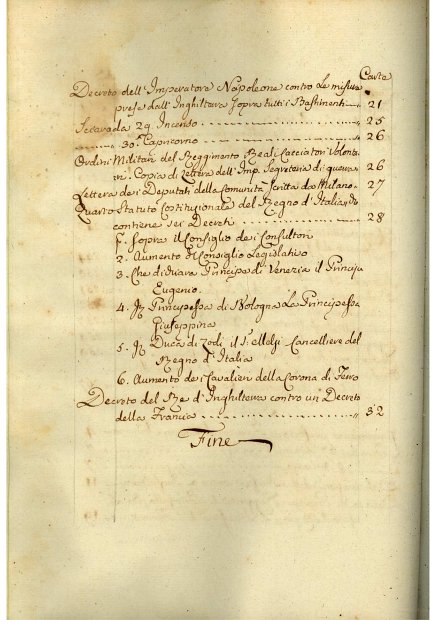 Carte
Decreto dell'Imperatore Napoleone contro Le misure
prese dall'Inghiltera sopra tutti i Bastimenti .. 21
Secarada 29. Incenso ... 25
30. Capricorno ... 26
Ordini Militari del Reggimento Reali Cacciatori Volonta
ri. Copia di Lettera dell'Imp. Segreteria di guerra 26
Lettera dei Deputati della Comunita scritta da Milano. 27
Quarto Statuto Costituzionale del Regno d'Italia, che
contiene sei Decreti ... 28
1. Sopra il Consiglio dei Consultori
2. Aumento del Consiglio Legislativo
3. Che dichiara Principe di Venezia il Principe
Eugenio.
4. Principessa di Bologna La Principessa
Giuseppina
5. Duca di Lodi il Melzi Cancelliere del
Regno d'Italia
6. Aumento dei Cavalieri della Corona di Ferro
Decreto del Re d'Inghiltera contro un Decreto
della Francia ... 32
Fine